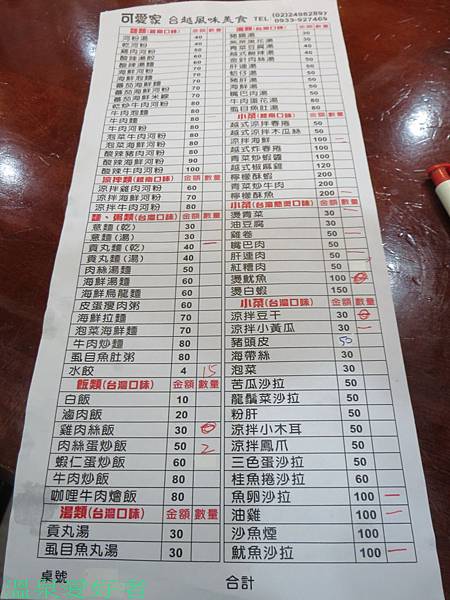 可愛家 台越風味美食 TEL (02)24982897
0933-927469
麵類(越南口味) 金額 數量
河粉湯 40
乾河粉 40
雞肉河粉 50
酸辣湯粉 60
酸辣湯麵 60
海鮮河粉 70
海鮮泡麵 70
番茄海鮮麵 70
番茄海鮮米線 70
乾炒牛肉河粉 90
牛肉泡麵 90
牛肉麵 90
泡菜牛肉河粉 90
泡菜海鮮河粉 90
酸辣豬肉河粉 80
酸辣海鮮河粉 90
酸辣牛肉河粉 100
涼拌類(越南口味) 金額 數量
涼拌雞肉河粉 60
涼拌海鮮河粉 70
涼拌牛肉河粉 70
麵、粥類(台灣口味) 金額 數量
意麵(乾) 30
意麵(湯) 30 一
貢丸麵(乾) 40
貢丸麵(湯) 40 一
肉絲湯麵 50
海鮮湯麵 60
海鮮烏龍麵 60
皮蛋瘦肉粥 60
海鮮拉麵 70
泡菜海鮮麵 70
牛肉炒麵 80
虱目魚肚粥 80
水餃 4 15
飯類(台灣口味) 金額 數量
白飯 10
滷肉飯 20
雞肉絲飯 30
肉絲蛋炒飯 50 2
蝦仁蛋炒飯 60
牛肉炒飯 80
咖哩牛肉燴飯 80
湯類(台灣口味) 金額 數量
貢丸湯 30
虱目魚丸湯 30
桌號
豬腸湯 30
金針肉絲湯 50
肝連湯 50
蛤仔湯 50
豬肝湯 50
海鮮湯 50
嘴巴肉湯 50
牛肉蛋花湯 80
虱目魚肚湯 80
小菜(越南口味) 金額 數量
越式涼拌春捲 50
越式涼拌木瓜絲 50
涼拌海鮮 100 一
越式炸春捲 100
青菜炒蝦醬 100
越式椒麻雞 120
檸檬酥蝦 200
青菜炒牛肉 200
檸檬酥魚 200 一
小菜(台灣簡燙口味) 金額 數量
燙青菜 30
油豆腐 30
雞卷 50 一
嘴巴肉 50
肝連肉 50
紅糟肉 50
燙魷魚 100
燙白蝦 150
小菜(台灣口味) 金額 數量
涼拌豆干 30
涼拌小黃瓜 30 一
豬頭皮 50
海帶絲 30
泡菜 30
苦瓜沙拉 50
龍鬚菜沙拉 50
粉肝 50
涼拌小木耳 50
涼拌鳳爪 50
三色蛋沙拉 50
桂魚捲沙拉 60
魚卵沙拉 100 一
油雞 100 一
沙魚煙 100
魷魚沙拉 100 一
合計
溫泉愛好者